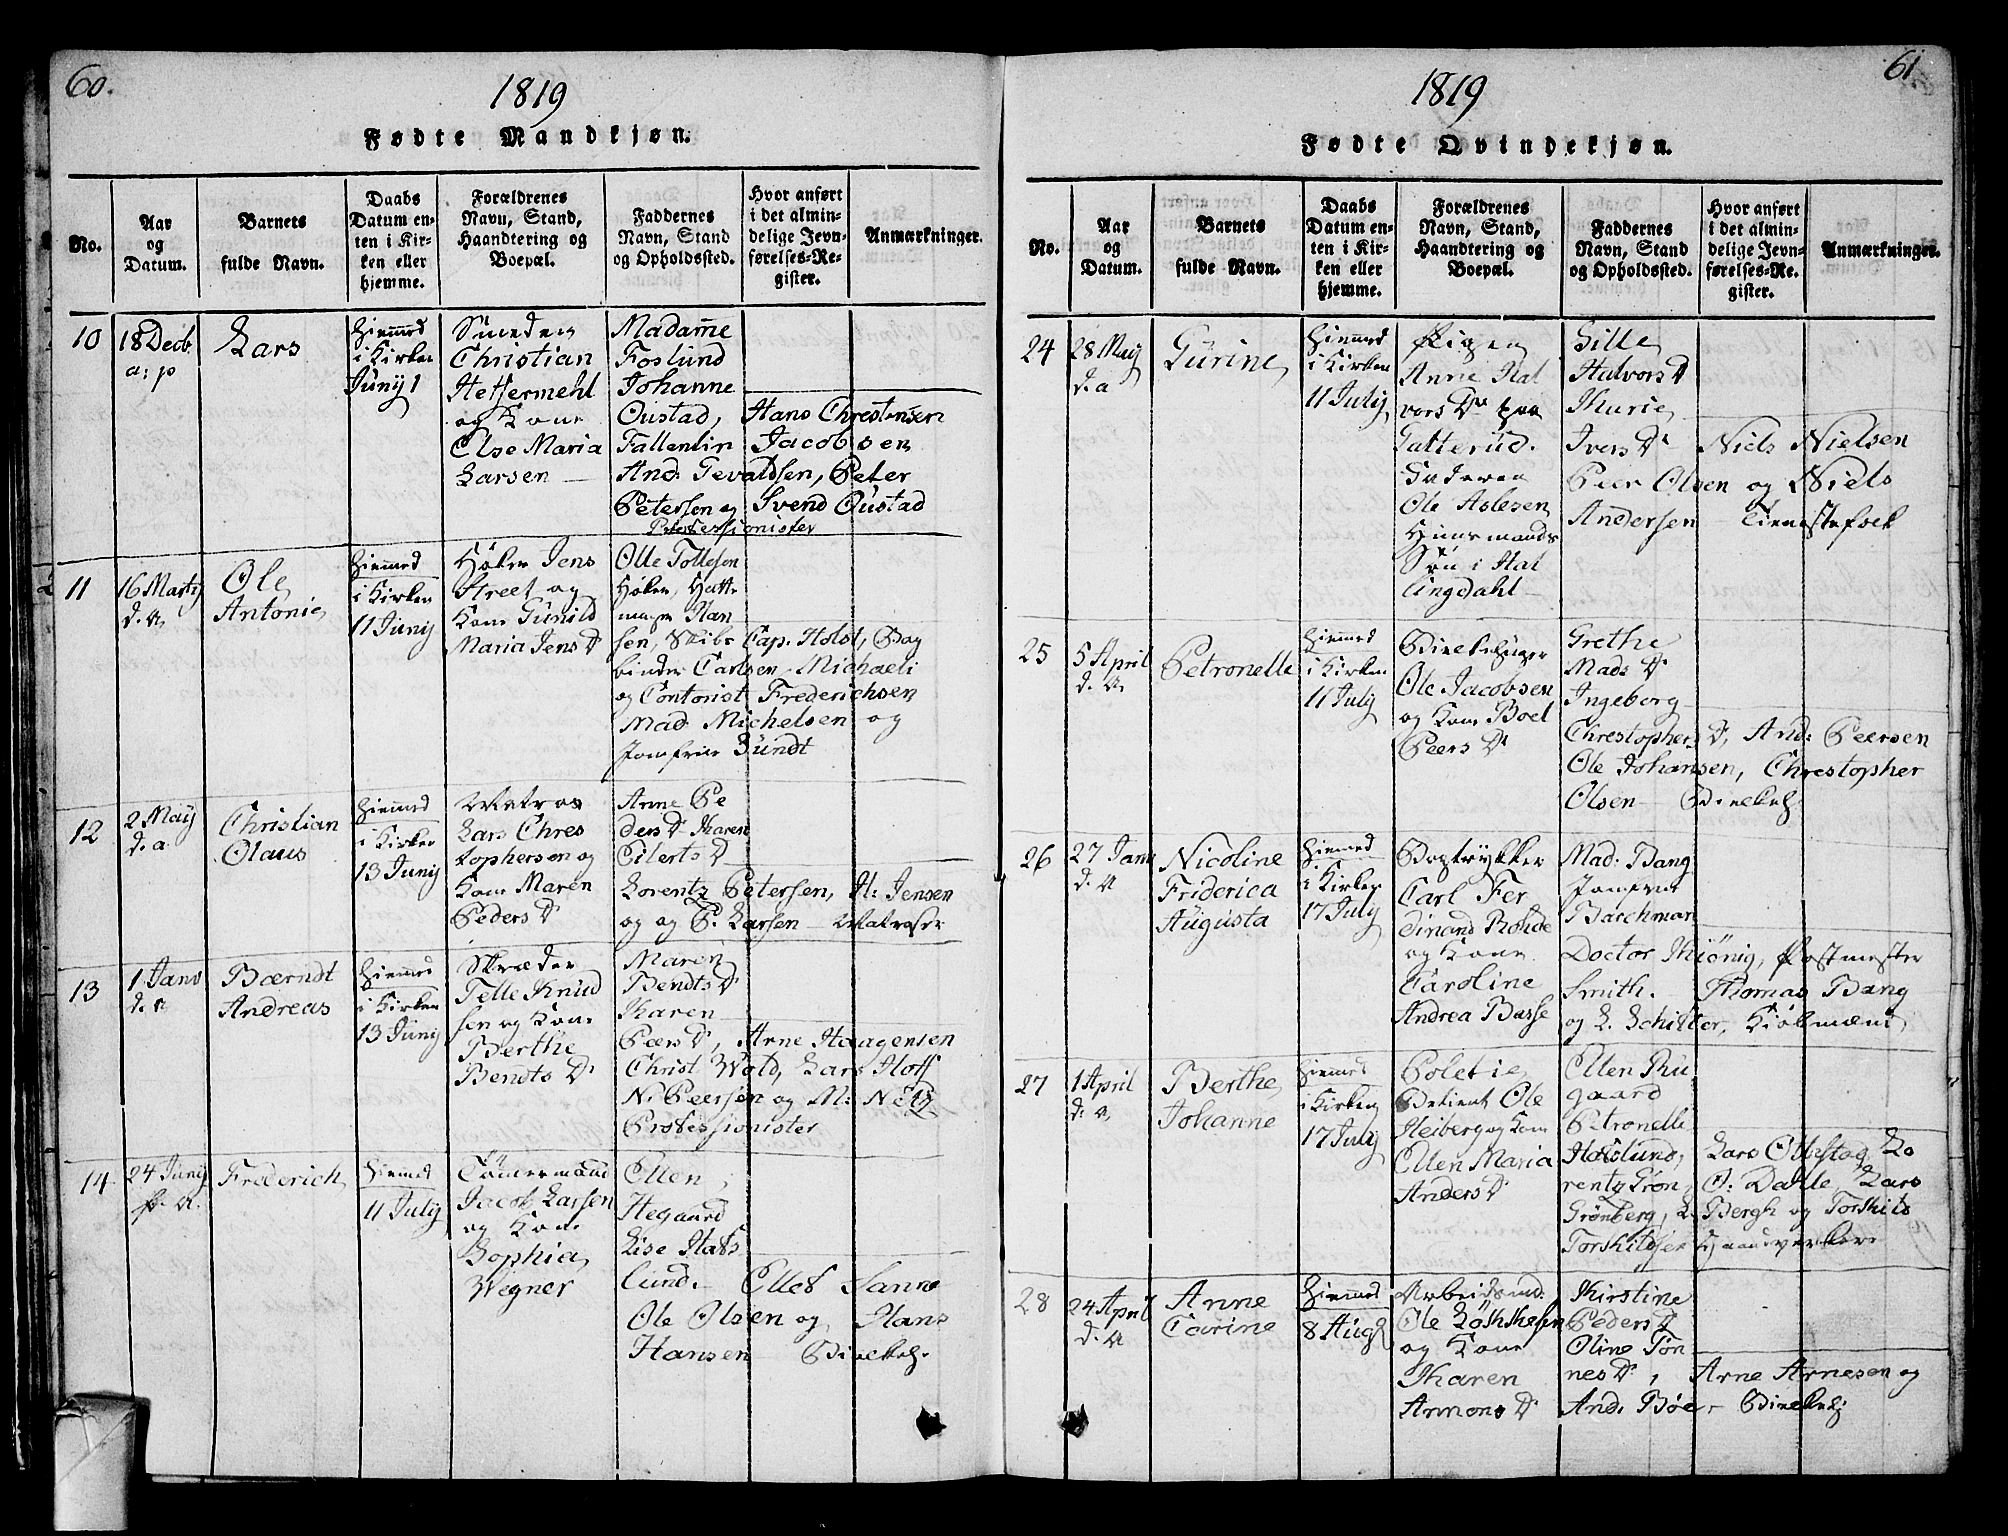 60.
1819
Fødte Mandkjøn.
No.
Aar
og
Datum.
Barnets
fulde Navn.
Daabs
Datum en-
ten i Kir-
ken eller
hjemme.
Forældrenes
Navn, Stand,
Haandtering og
Boepæl.
Faddernes
Navn, Stand
og Opholdssted.
Hvor anført
i det almin-
delige Jevn-
førelses-Re-
gister.
Anmærkninger.
10
18 Decb
a: p
Lars
Hiemmed
i Kirken
Juny 1
Smeden
Christian
Heffermehl
og Kone
Else Maria
Larsen
Madame
Foslund
Johanne
Oustad, Hans Christensen
Fallentin Jacobsen
And: Gevaldsen, Peter
Petersen og Svend Oustad
Professionister
11
16 Marty
d. a.
Ole
Antonie
Hiemmed
i Kirken
11 Juny
Høker Jens
Street og
Kone Gunild
Maria Jens Dr
Olle Tollesen
Høker, Hatt-
mager Han
sen, Skibs Cap. Holst, Bog
binder Carlsen Michaeli
og Contorist Frederichsen
Mad. Michelsen og
Jomfrue Bundt
12
2 May
d. a
Christian
Olaus
Hiemmed
i Kirken
13 Juny
Matros
Lars Chres
tophersen og
Kone Maren
Peders Dr
Anne Pe
ders Dr Karen
Eilerts Dr
Lorentz Petersen, H: Jensen
og og P. Larsen Matroser
13
1 Janv
d. a
Bærndt
Andreas
Hiemmed
i Kirken
13 Juny
Skræder
Telle Knud
sen og Kone
Berthe
Bendts Dr
Maren
Bendts Dr
Karen
Pærs Dr, Arne Haagensen
Christ Wold, Lars Hoff
N. Peersen og M: Nety
Professionister
14
24 Juny
f. a.
Frederich
Hiemmed
11 July
Tømermand
Jacob Larsen
og Kone
Sophia
Wegner
Ellen
Hegaard
Lise Hals
lund. Ellef Sanne
Ole Olsen og Hans
Hansen
61
1819
Fødte Qvindekjøn.
No.
Aar
og
Datum.
Barnets
fulde Navn.
Daabs
Datum en-
ten i Kir-
ken eller
hjemme.
Forældrenes
Navn, Stand,
Haandtering og
Boepæl.
Faddernes
Navn, Stand
og Opholdssted.
Hvor anført
i det almin-
delige Jevn-
førelses-Re-
gister.
Anmærkninger.
24
28 May
d. a
Gurine
Hiemmed
i Kirken
11 July
Pigen
Anne Hal
vors Dr paa
Tatterud.
Faderen
Ole Aslesen
Huusmands
Søn i Hal
lingdahl
Sille
Halvors Dr
Marie
Ivers Dr Niels Nielsen
Peer Olsen og Niels
Andersen Tienestefolk
25
5 April
d. a
Petronelle
Hiemmed
i Kirken
11 July
Ole Jacobsen
og Kone Boel
Peers Dr
Grethe
Mads Dr
Ingeborg
Christophers Dr, And: Peersen
Ole Johansen, Christopher
Olsen
26
27 Janv
d. a
Nicoline
Friderica
Augusta
Hiemmed
i Kirken
17 July
Bogtrykker
Carl Fer
dinand Rohde
og Kone
Caroline
Andrea Basse
Mad: Bang
Jomfrue
Barchman
Doctor Kiønig, Postmester
Smith. Thomas Bang
og L. Schitter, Kiøbmænd
27
1 April
d. a
Berthe
Johanne
Hiemmed
i Kirken
17 July
Poletie
Betient Ole
Heiberg og Kone
Ellen Maria
Anders Dr
Ellen Ru
gaard
Petronelle
Haslund, Lars Ollestad, Lo
rentz Grøn, O: Dahle, Lars
Grønberg, L. Bergh og Torskild
Torskildsen Haandverkere
28
24 April
d. a
Anne
Carine
Hiemmed
8 Augs
Arbeidsmd.
og Kone
Karen
Armons Dr
Kirstine
Peders Dr
Oline Tøn
nes Dr, Arne Arnesen og
And. Bøe